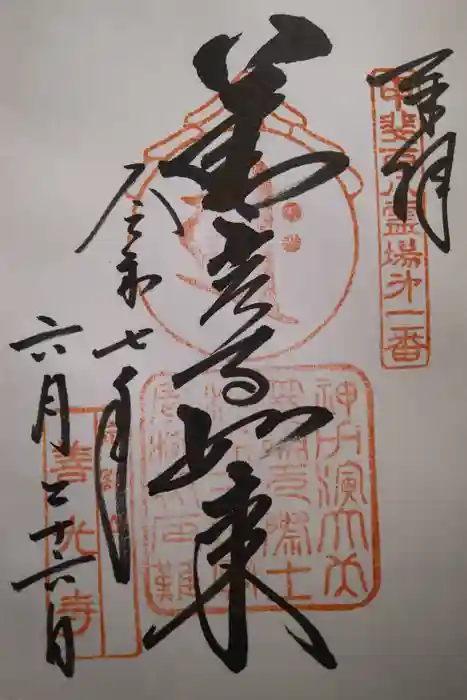 奉拝
甲斐百八霊場第一番
善光寺如来
神力演大光
令和七年
六月二十六日
善光寺